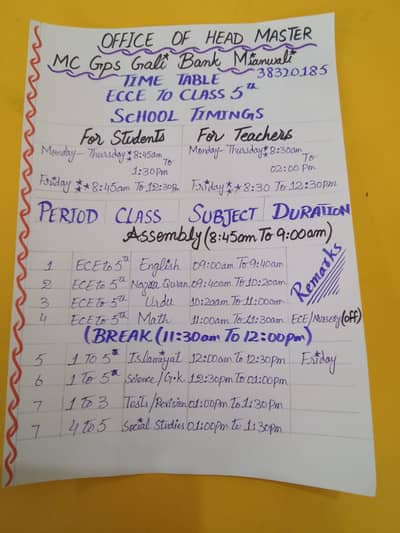 OFFICE OF HEAD MASTER
MC Gps Gali Bank Mianwali
38320185
TIME TABLE
ECCE TO CLASS 5th
SCHOOL TIMINGS
For Students For Teachers
Monday- Thursday 8:45am To 1:30Pm
Monday- Thursday 8:30am To 02:00 Pm
Friday 8:45am To 12:30Pm
Friday 8:30 To 12:30pm
PERIOD CLASS SUBJECT DURATION
Assembly (8:45am To 9:00am)
Remarks
1 ECE to 5th English 09:00am To 9:40am
2 ECE to 5th Nazra Quran 09:40am To 10:20am
3 ECE to 5th Urdu 10:20am To 11:00am
4 ECE to 5th Math 11:00am To 11:30am ECE/Nursery (off)
(BREAK (11:30am To 12:00pm)
5 1 To 5th Islamiyat 12:00am To 12:30pm Friday
6 1 to 5th Science/G.k 12:30pm To 01:00pm
7 1 to 3 Tests/Revision 01:00pm To 1:30pm
7 4 to 5 Social Studies 01:00pm To 1:30pm